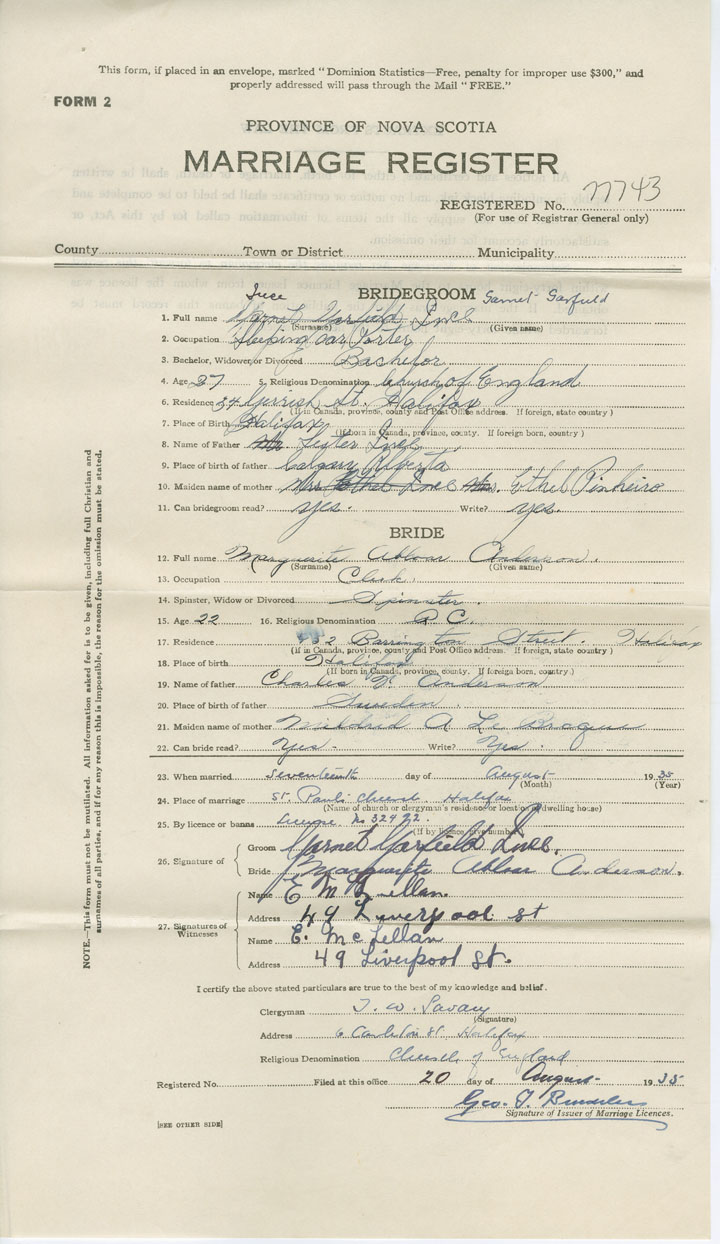 This form, if placed in an envelope, marked "Dominion Statistics—Free, penalty for improper use $300," and
properly addressed will pass through the Mail "FREE."
FORM 2
PROVINCE OF NOVA SCOTIA
MARRIAGE REGISTER
REGISTERED No. 7743
(For use of Registrar General only)
County Town or District Municipality
BRIDEGROOM Garnet Garfield
1. Full name Garnet Garfield
(Surname) (Given name)
2. Occupation Sleeping car Porter
3. Bachelor, Widower, or Divorced Bachelor
4. Age 27 5. Religious Denomination Church of England
6. Residence 34 Gerrish St. Halifax
(If in Canada, province, county and Post Office address. If foreign, state country)
7. Place of Birth Halifax
(If born in Canada, province, county. If foreign born, country)
8. Name of Father Lester
9. Place of birth of father Calgary Alberta
10. Maiden name of mother Mrs. Ethel Mrs. Ethel Pinheiro
11. Can bridegroom read? yes. Write? yes.
BRIDE
12. Full name Marguerite Anderson.
(Surname) (Given name)
13. Occupation Clerk.
14. Spinster, Widow or Divorced Spinster.
15. Age 22 16. Religious Denomination R C.
17. Residence Barrington Street. Halifax
(If in Canada, province, county and Post Office address. If foreign, state country)
18. Place of birth Halifax
(If born in Canada, province, county. If foreign born, country.)
19. Name of father Charles Anderson
20. Place of birth of father Sweden
21. Maiden name of mother Mildred A Le
22. Can bride read? Yes. Write? Yes.
23. When married seventeenth day of August 1935
(Month) (Year)
24. Place of marriage St. Pauls Church, Halifax
(Name of church or clergyman's residence or location of dwelling house)
25. By licence or banns License No 32422.
(If by licence, give number)
26. Signature of
Groom Garnet Garfield
Bride Marguerite Anderson.
27. Signatures of Witnesses
Name E M
Address 49 Liverpool st
Name E. McLellan
Address 49 Liverpool St.
I certify the above stated particulars are true to the best of my knowledge and belief.
Clergyman T. W. Savary
(Signature)
Address 6 Carleton St. Halifax
Religious Denomination Church of England
Registered No. Filed at this office 20 day of August 1935
Geo. T.
Signature of Issuer of Marriage Licences.
[SEE OTHER SIDE]
NOTE.—This form must not be mutilated. All information asked for is to be given, including full Christian and
surnames of all parties, and if for any reason this is impossible, the reason for the omission must be stated.